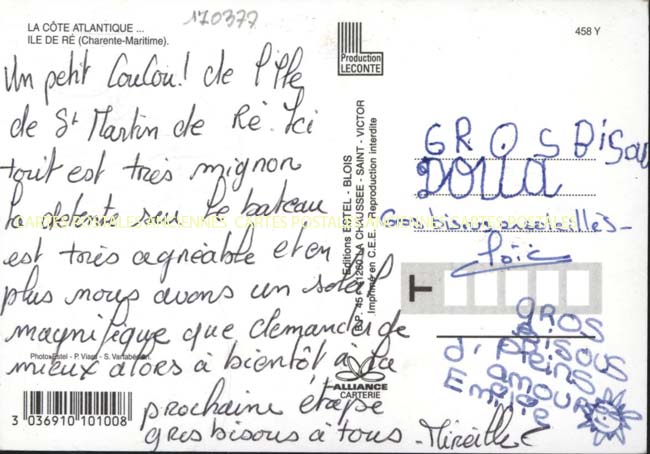 170377
LA CÔTE ATLANTIQUE ...
ILE DE RÉ (Charente-Maritime).
458 Y
Production
LECONTE
Un petit Coucou! de l'Ile
de St Martin de Ré. Ici
tout est très mignon
la détente sur le bateau
est très agréable et en
plus nous avons un soleil
magnifique que demander de
mieux alors à bientôt à la
prochaine étape
gros bisous à tous - Mireille
CARTES POSTALES ANCIENNES CARTES POSTALES ANCIENNES CARTES POSTALES
Photo Estel - P. Viard - S. Vartabédian.
3 036910 101008
Editions ESTEL - BLOIS
B.P. 45 - 41260 LA CHAUSSEE - SAINT - VICTOR
Imprimé en C.E.E. - Reproduction interdite
ALLIANCE
CARTERIE
GROS BISOU
Gros bisous ensoleillés -
Loïc
T
GROS
BISOUS
d'Pleins
amour
Emelie